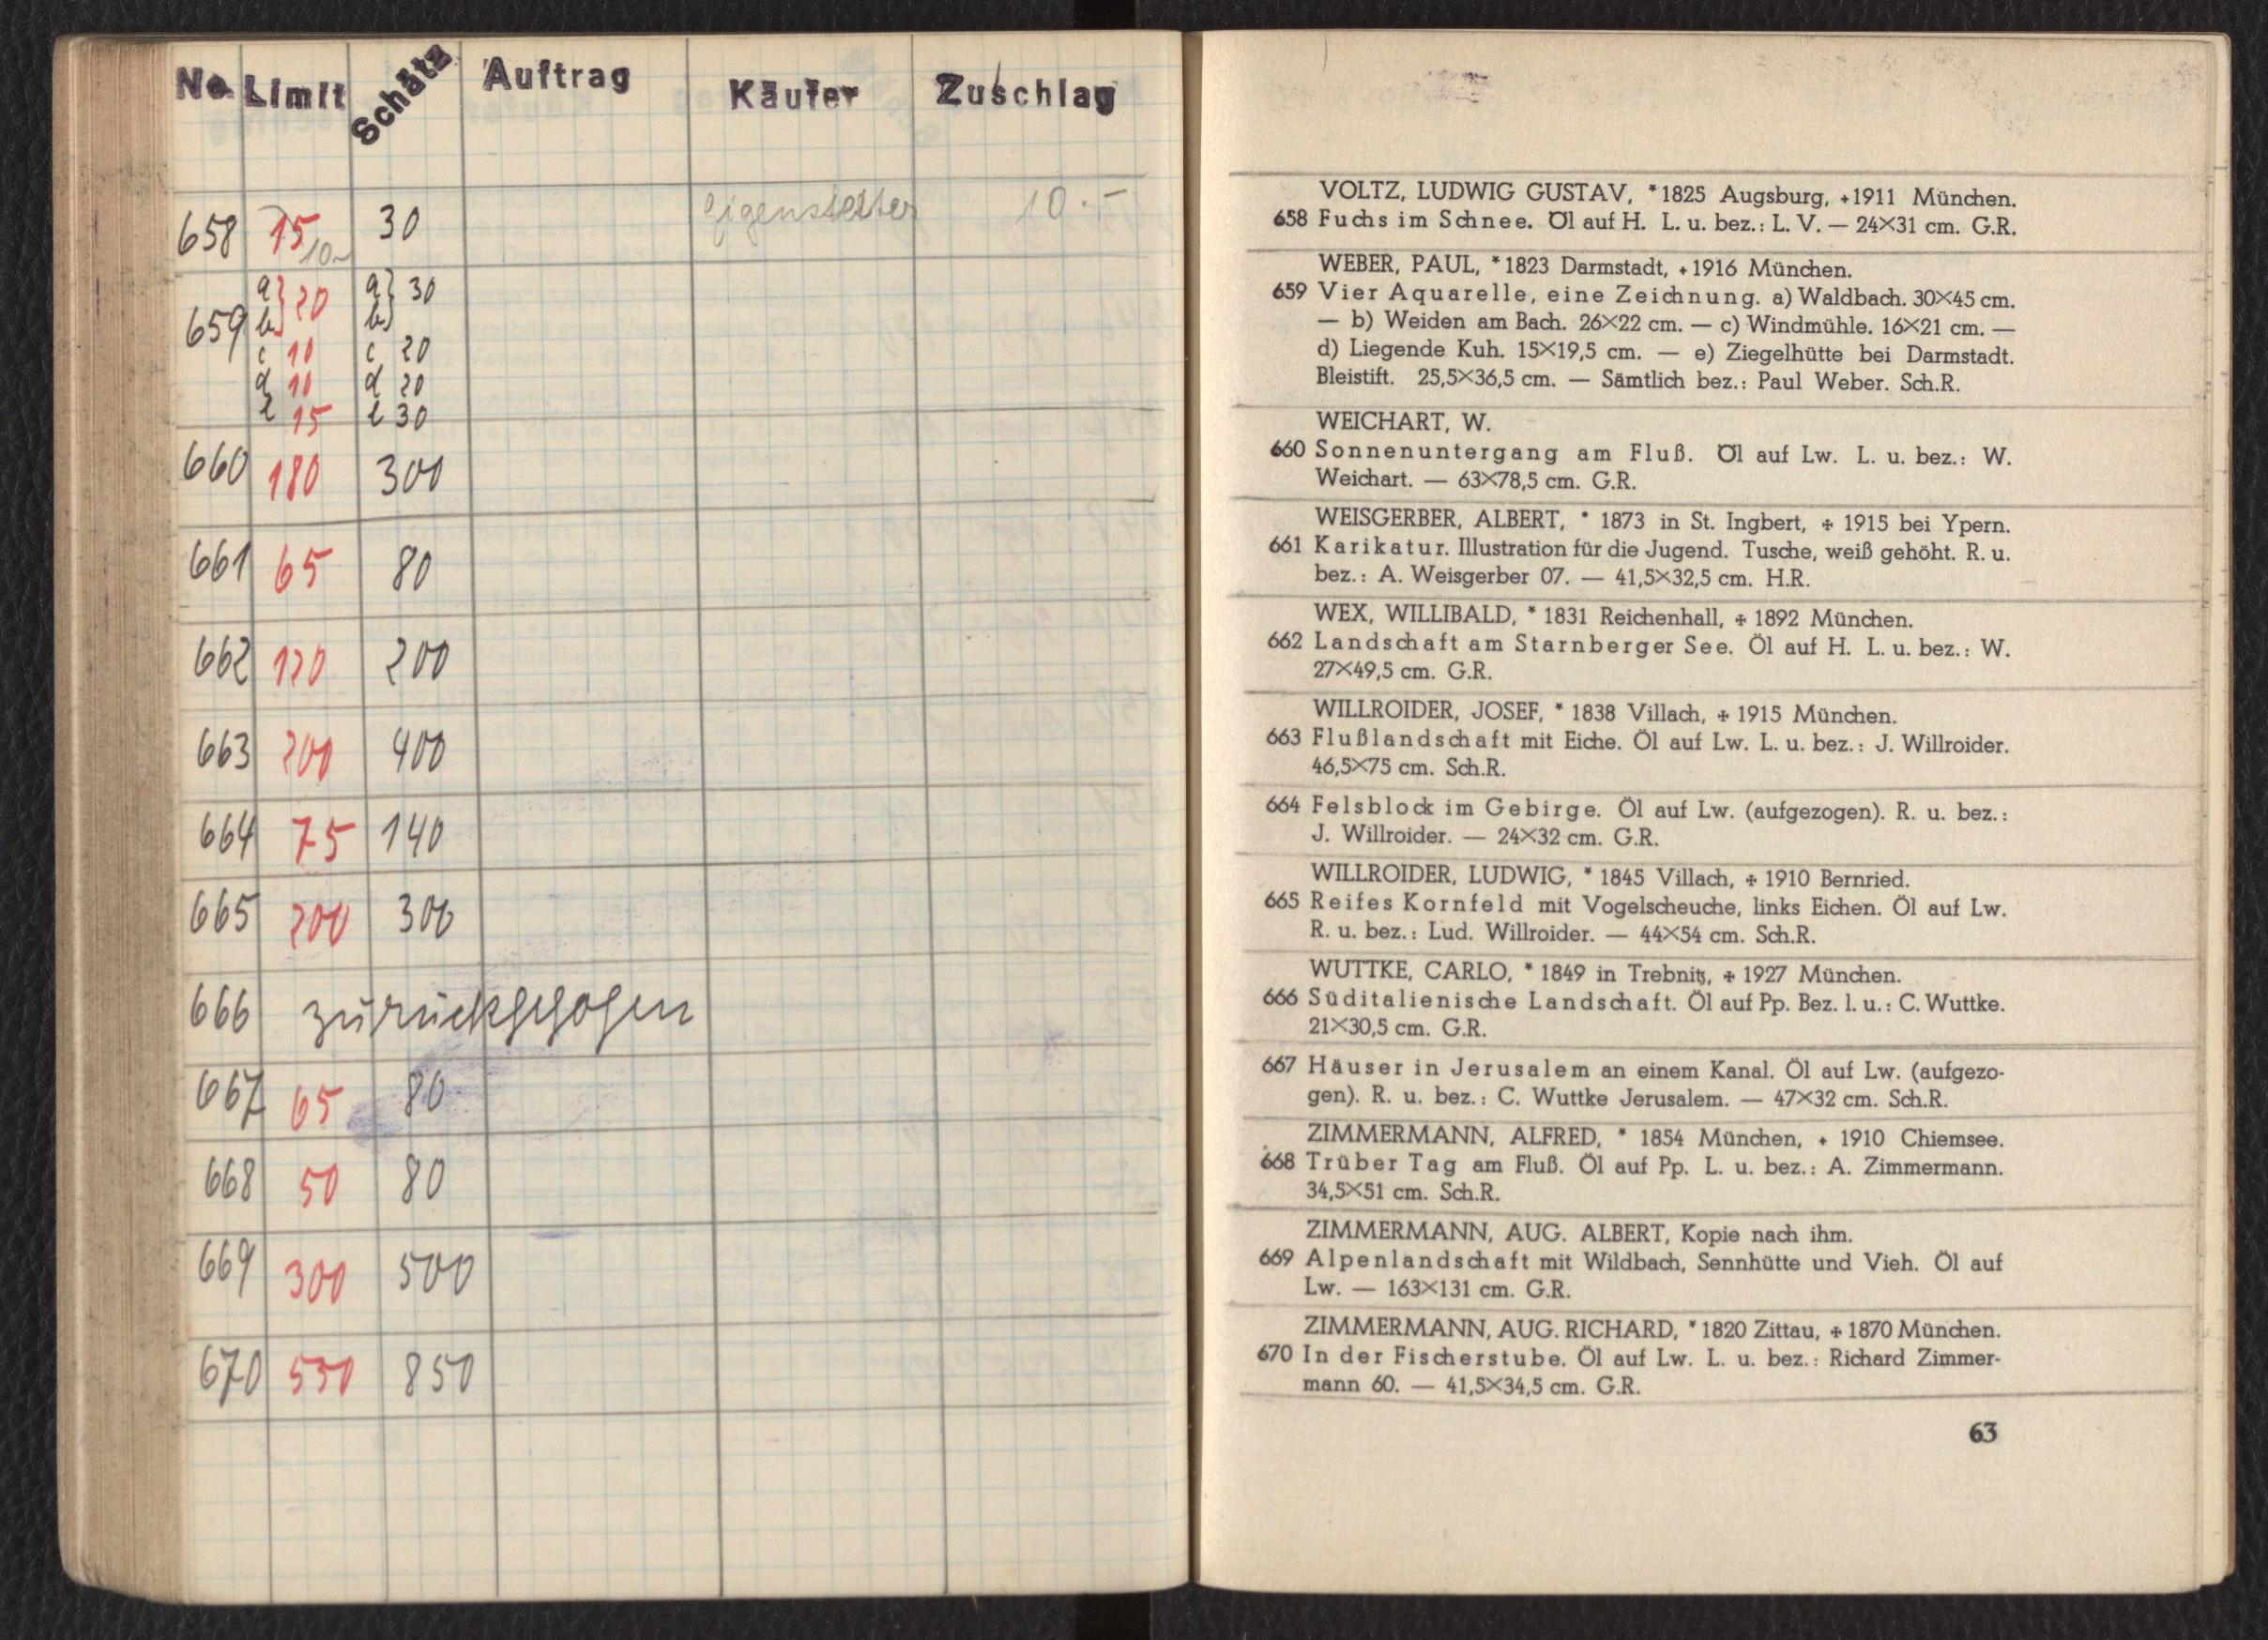 No. Limit Schätz Auftrag Käufer Zuschlag
658 15 10.- 30 10.-
659 a) b) 20 a) b) 30
c 10 c 20
d 10 d 20
e 15 e 30
660 180 300
661 65 80
662 120 200
663 200 400
664 75 140
665 200 300
666 zurückgezogen
667 65 80
668 50 80
669 300 500
670 550 850
VOLTZ, LUDWIG GUSTAV, *1825 Augsburg, +1911 München.
658 Fuchs im Schnee. Öl auf H. L. u. bez.: L. V. — 24×31 cm. G.R.
WEBER, PAUL, *1823 Darmstadt, +1916 München.
659 Vier Aquarelle, eine Zeichnung. a) Waldbach. 30×45 cm.
— b) Weiden am Bach. 26×22 cm. — c) Windmühle. 16×21 cm. —
d) Liegende Kuh. 15×19,5 cm. — e) Ziegelhütte bei Darmstadt.
Bleistift. 25,5×36,5 cm. — Sämtlich bez.: Paul Weber. Sch.R.
WEICHART, W.
660 Sonnenuntergang am Fluß. Öl auf Lw. L. u. bez.: W.
Weichart. — 63×78,5 cm. G.R.
WEISGERBER, ALBERT, * 1873 in St. Ingbert, + 1915 bei Ypern.
661 Karikatur. Illustration für die Jugend. Tusche, weiß gehöht. R. u.
bez.: A. Weisgerber 07. — 41,5×32,5 cm. H.R.
WEX, WILLIBALD, * 1831 Reichenhall, + 1892 München.
662 Landschaft am Starnberger See. Öl auf H. L. u. bez.: W.
27×49,5 cm. G.R.
WILLROIDER, JOSEF, * 1838 Villach, + 1915 München.
663 Flußlandschaft mit Eiche. Öl auf Lw. L. u. bez.: J. Willroider.
46,5×75 cm. Sch.R.
664 Felsblock im Gebirge. Öl auf Lw. (aufgezogen). R. u. bez.:
J. Willroider. — 24×32 cm. G.R.
WILLROIDER, LUDWIG, * 1845 Villach, + 1910 Bernried.
665 Reifes Kornfeld mit Vogelscheuche, links Eichen. Öl auf Lw.
R. u. bez.: Lud. Willroider. — 44×54 cm. Sch.R.
WUTTKE, CARLO, * 1849 in Trebnitz, + 1927 München.
666 Süditalienische Landschaft. Öl auf Pp. Bez. l. u.: C. Wuttke.
21×30,5 cm. G.R.
667 Häuser in Jerusalem an einem Kanal. Öl auf Lw. (aufgezo-
gen). R. u. bez.: C. Wuttke Jerusalem. — 47×32 cm. Sch.R.
ZIMMERMANN, ALFRED, * 1854 München, + 1910 Chiemsee.
668 Trüber Tag am Fluß. Öl auf Pp. L. u. bez.: A. Zimmermann.
34,5×51 cm. Sch.R.
ZIMMERMANN, AUG. ALBERT, Kopie nach ihm.
669 Alpenlandschaft mit Wildbach, Sennhütte und Vieh. Öl auf
Lw. — 163×131 cm. G.R.
ZIMMERMANN, AUG. RICHARD, *1820 Zittau, + 1870 München.
670 In der Fischerstube. Öl auf Lw. L. u. bez.: Richard Zimmer-
mann 60. — 41,5×34,5 cm. G.R.
63